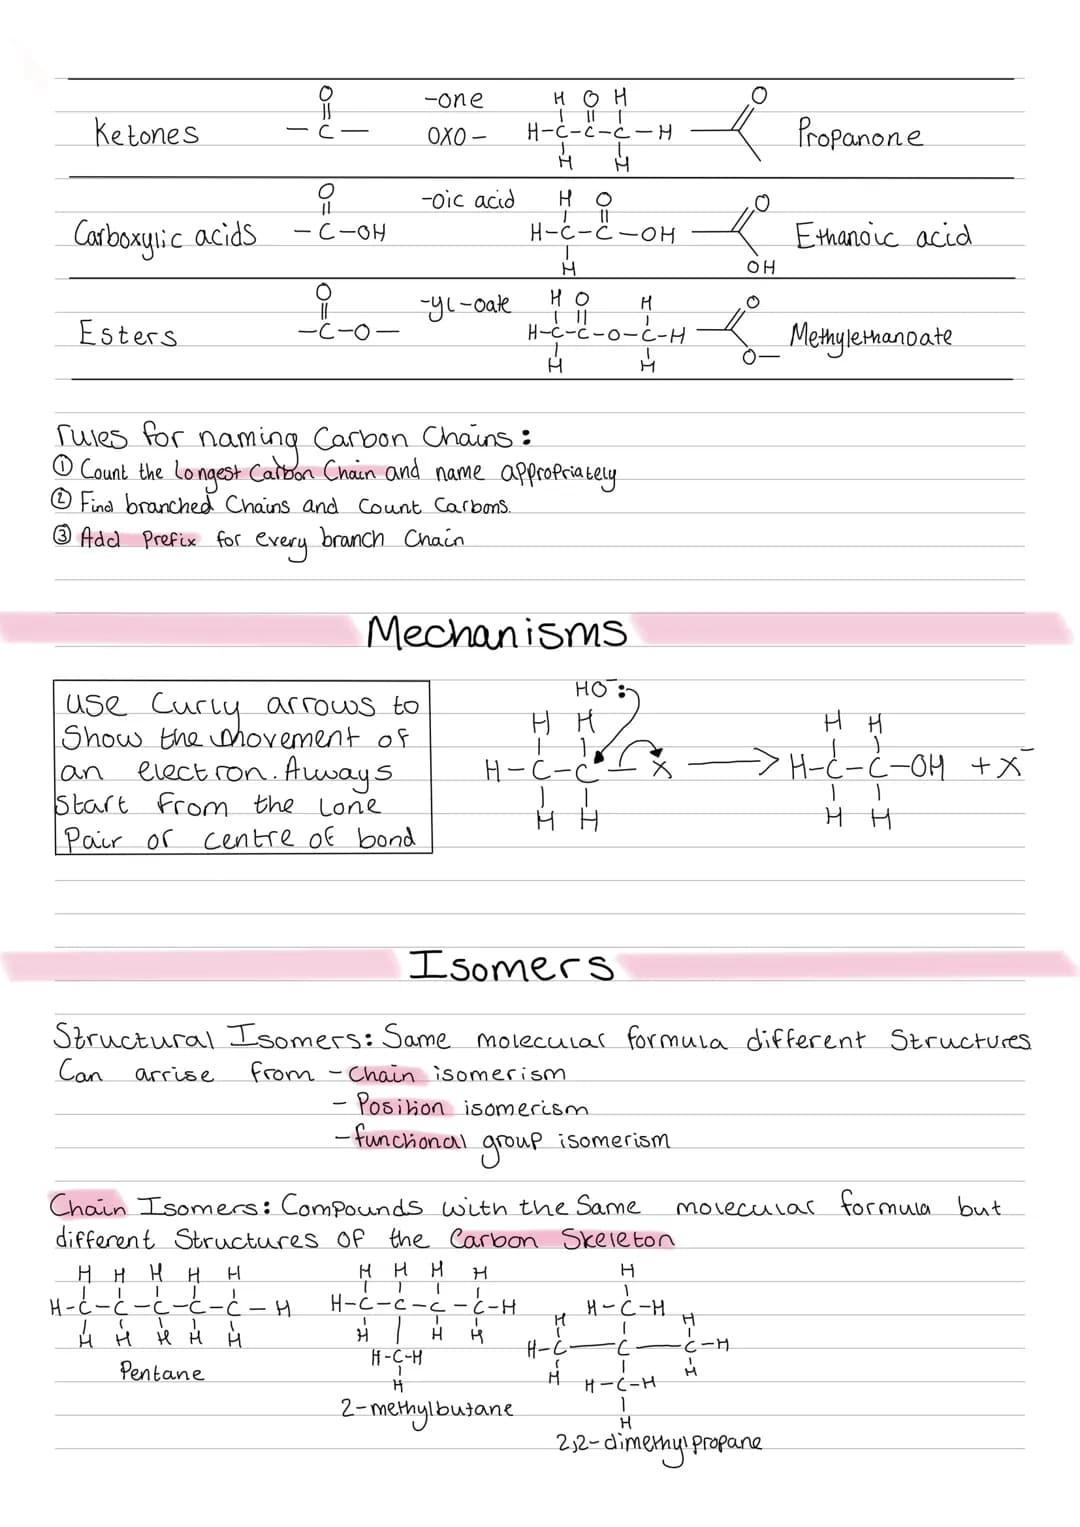 Ketones
O
||
– C –
-one
oxo -
H O H
| || |
H-C-C-C-H
| |
H H
O
Propanone
Carboxylic acids
O
||
– C-OH
-oic acid
H O
| ||
H-C-C-OH
|
H
O
OH
Ethanoic acid
Esters
O
||
-C-O-
-yl-oate
H O H
| || |
H-C-C-O-C-H
| |
H H
O
O
Methylethanoate
rules for naming Carbon Chains:
① Count the Longest Carbon Chain and name appropriately
② Find branched Chains and Count Carbons.
③ Add Prefix for every branch Chain
Mechanisms
use Curly arrows to
Show the movement of
an electron. Always
Start from the Lone
Pair or centre of bond
HO⁻:
H H
| |
H-C-C-X
| |
H H
→
H H
| |
H-C-C-OH + X⁻
| |
H H
Isomers
Structural Isomers: Same molecular formula different Structures
Can arrise from - Chain isomerism
- Position isomerism
- functional group isomerism
Chain Isomers: Compounds with the Same molecular formula but
different Structures of the Carbon Skeleton
H H H H H
| | | | |
H-C-C-C-C-C-H
| | | | |
H H H H H
Pentane
H H H H
| | | |
H-C-C-C-C-H
| | | |
H | H H
H-C-H
|
H
2-methylbutane
H
|
H-C-H
H | H
H-C-C-C-H
H | H
H-C-H
|
H
2,2-dimethylpropane